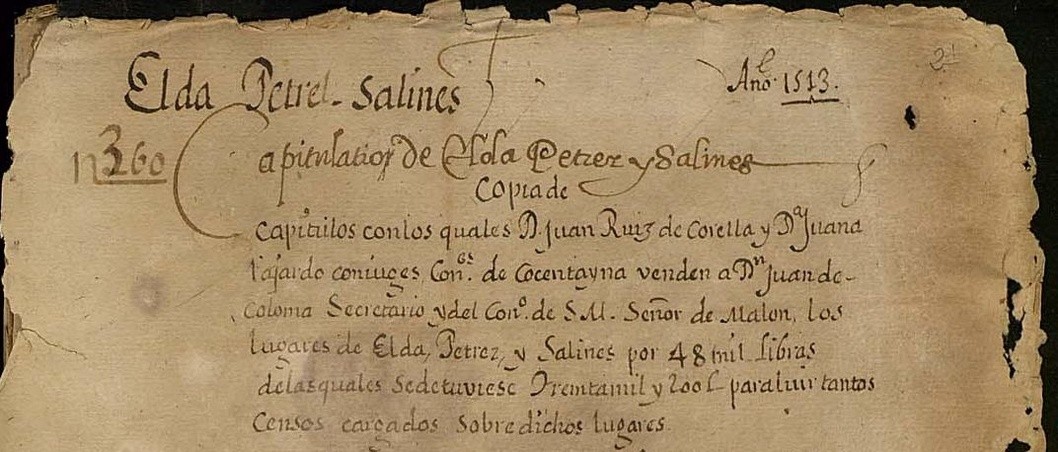 21
Elda Petrel - Salines
Año 1513.
n 360
Capitulatioṉ de Elda Petrer y Salines
Copia de
Capitulos con los quales D. Juan Ruiz de Corella y Dª Juana
fajardo coniuges, Con.ᵉˢ de Cocentayna venden a Dⁿ Juan de-
Coloma Secretario y del Conº. de S.M. Señor de Malon, los
lugares de Elda, Petrer, y Salines por 48 mil Libras
de las quales se detuviese Tremtamil y 200 L para luir tantos
Censos cargados sobre dichos lugares